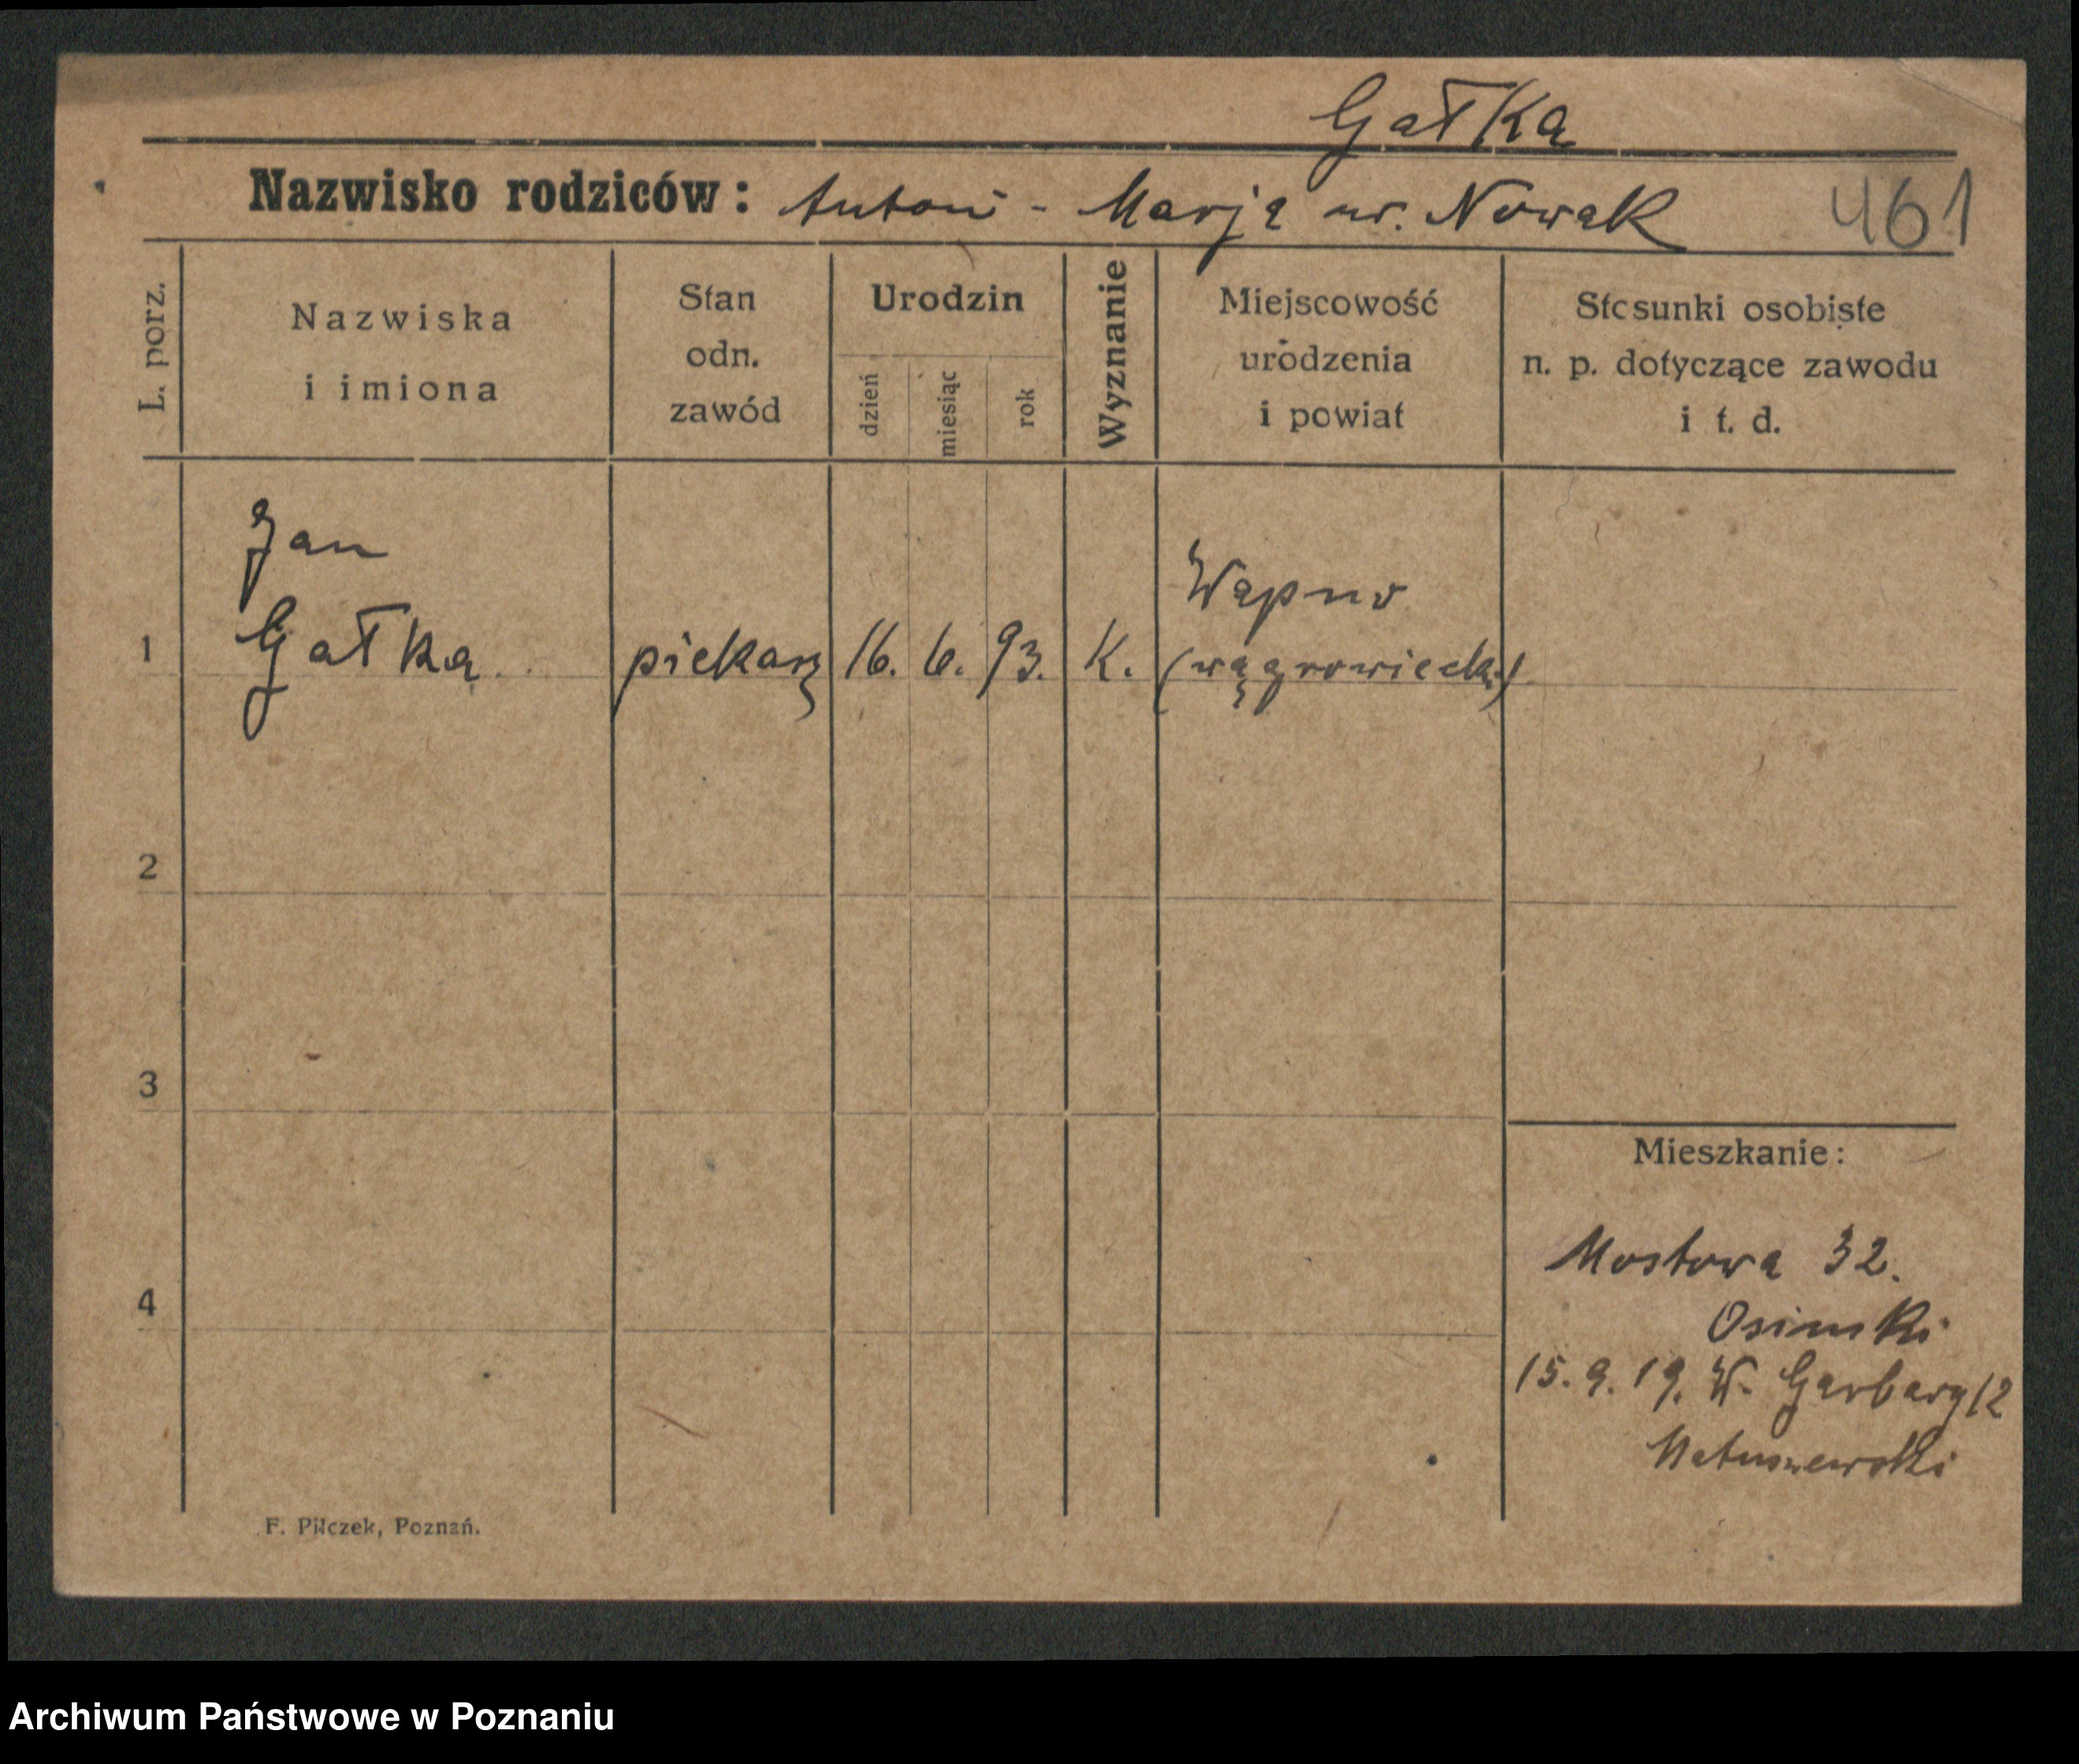 Gałka
Nazwisko rodziców: Antoni - Marja ur. Nowak 461
L. porz.
Nazwiska
i imiona
Stan
odn.
zawód
Urodzin
dzień
miesiąc
rok
Wyznanie
Miejscowość
urodzenia
i powiat
Stosunki osobiste
n. p. dotyczące zawodu
i t. d.
Jan
1 Gałka piekarz 16. 6. 93. K. Wapno
(wągrowiecki)
2
3
4
Mieszkanie:
Mostowa 32.
Osinski
15.9.19. W. Garbary 12
Matuszewski
F. Pilczek, Poznań.
Archiwum Państwowe w Poznaniu